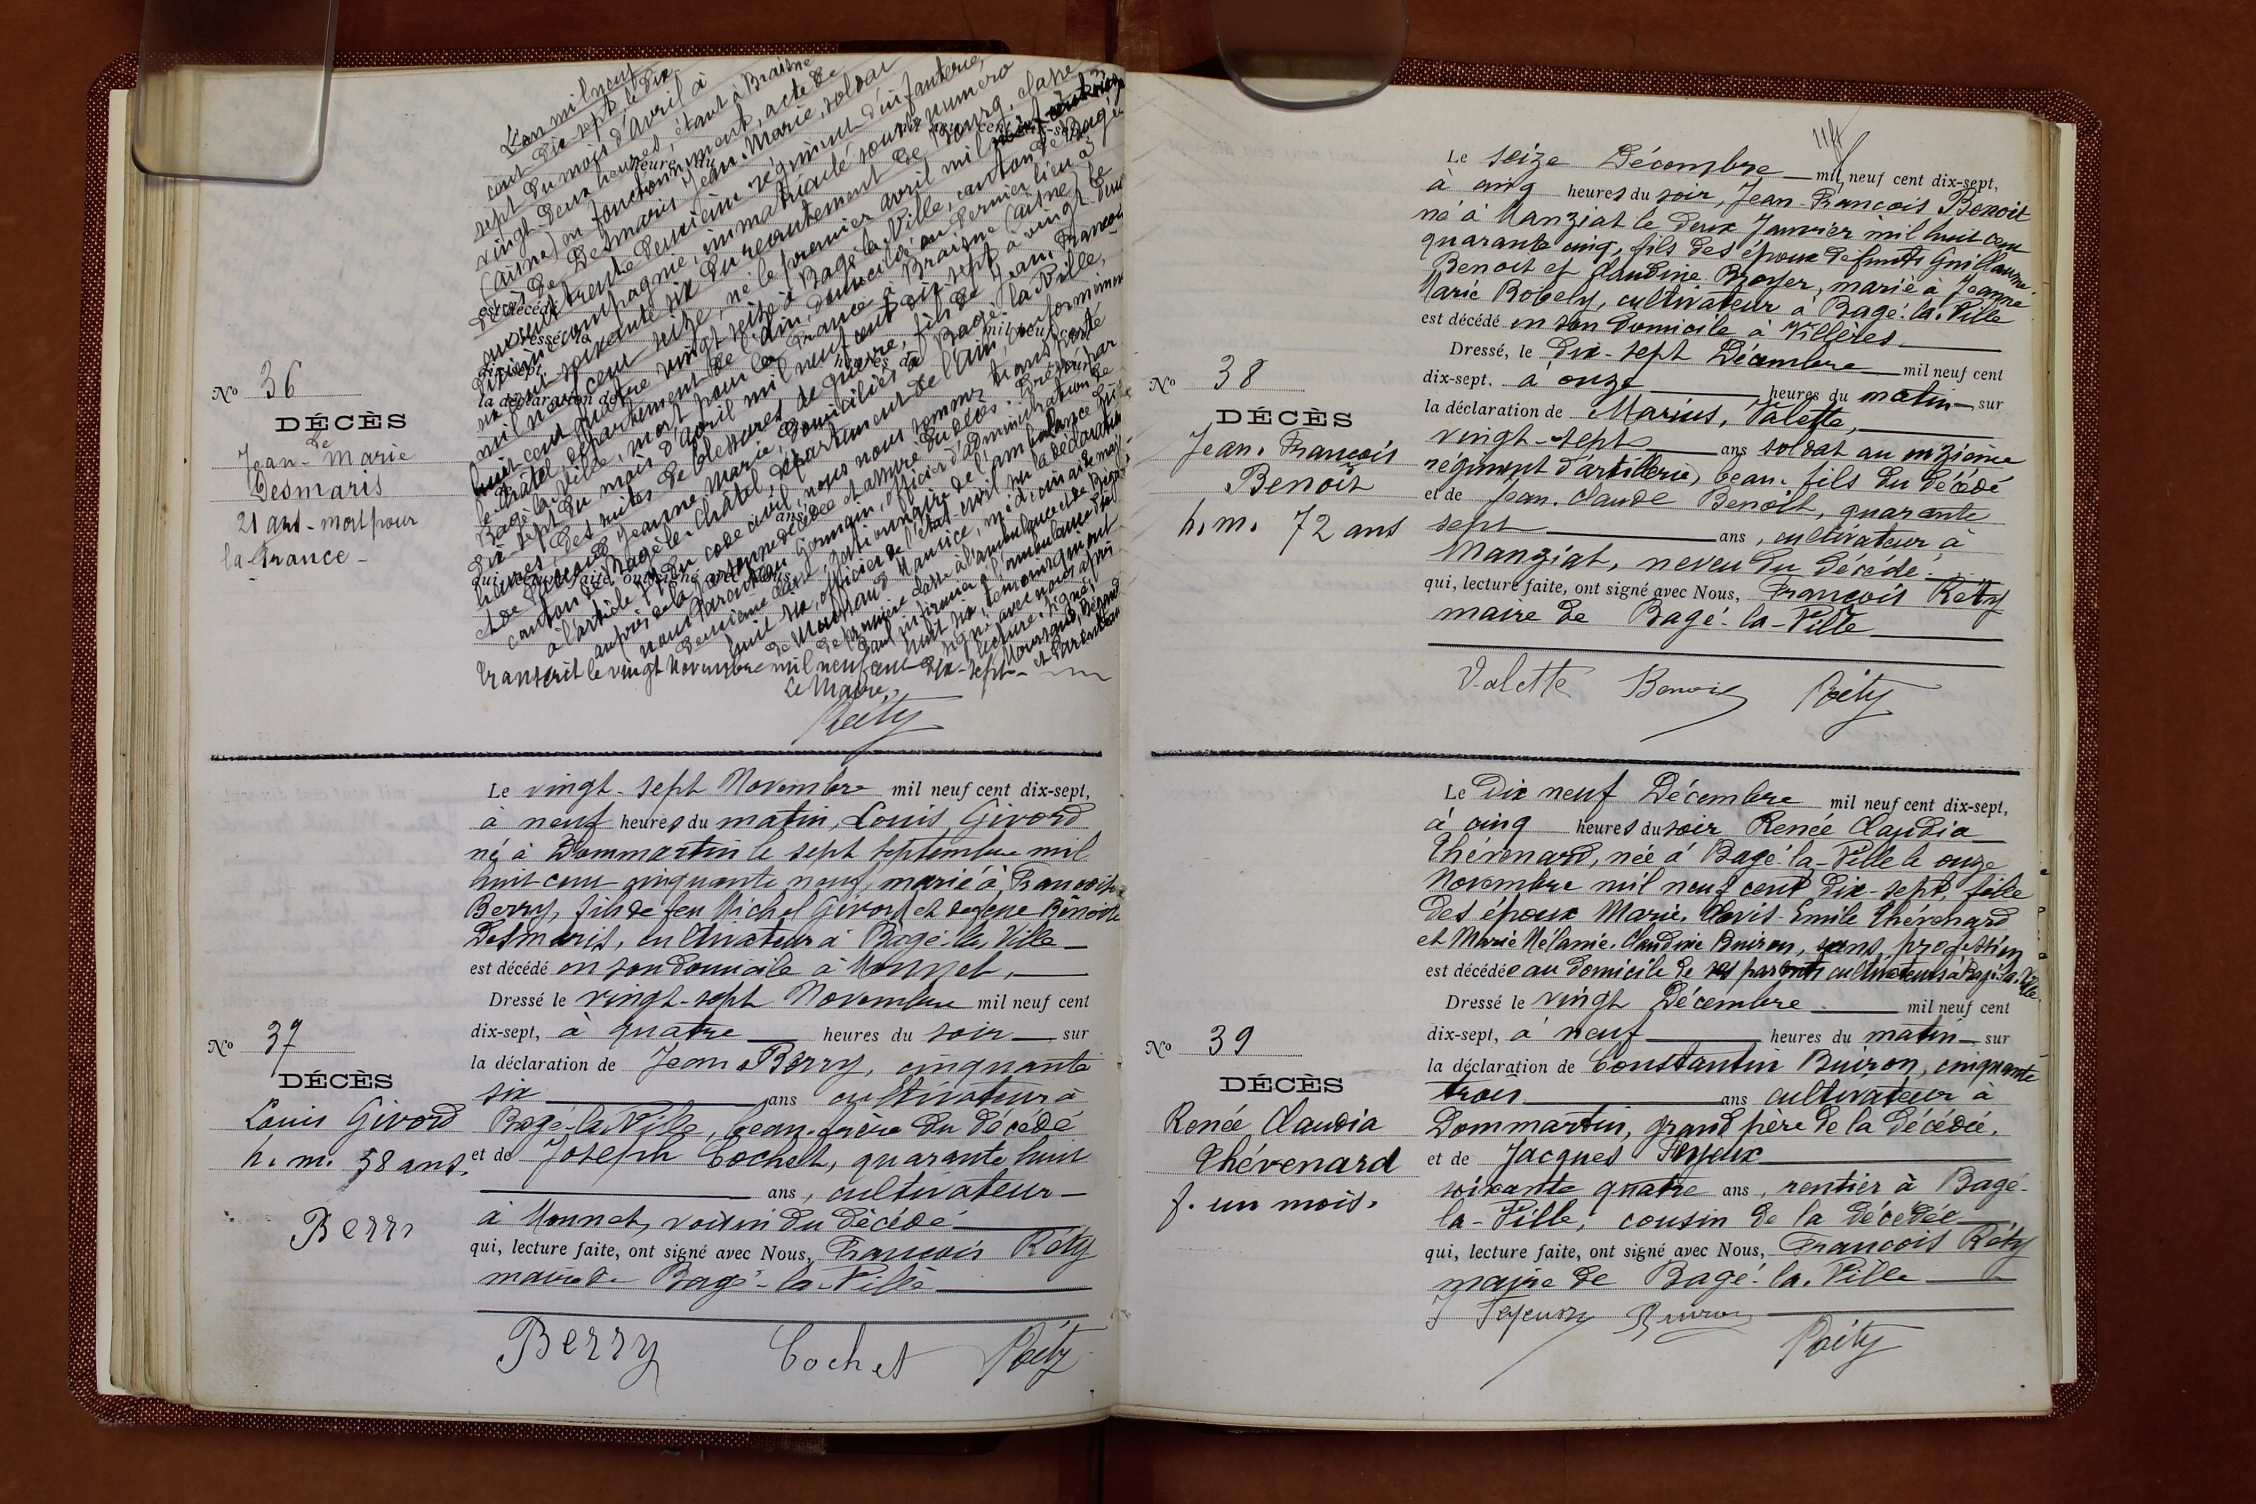 L'an mil neuf
cent dix-sept le dix
sept du mois d'Avril à
vingt deux heures, étant à Braisne
(Aisne) en fonctionnement, acte de
décès de Desmaris Jean-Marie, soldat
au cent trente deuxième régiment d'infanterie,
compagnie, immatriculé sous le numéro
six du recrutement de Bourg, classe
mil neuf cent seize, né le premier avril mil
huit cent quatre vingt seize à Bagé la Ville, canton de Bagé
le Châtel, département de l'Ain, domicilié en dernier lieu à
Bagé la Ville, mort pour la France à Braisne (Aisne) le
dix-sept du mois d'Avril mil neuf cent dix sept à vingt deux
heures, des suites de blessures de guerre, fils de Jean, François
et de Jeanne Marie, domiciliés à Bagé la Ville,
canton de Bagé le Châtel, département de l'Ain, conformément
à l'article 77 du code civil, nous nous sommes transporté
auprès de la personne décédée et assuré du décès. Dressé par
nous Parenteau Germain, officier d'administration de
deuxième classe, gestionnaire de l'ambulance
huit six, officier de l'état-civil sur la déclaration
de Maurice, médecin aide major
de première classe à l'ambulance et de
infirmier à l'ambulance
huit six, témoins qui ont
signé avec nous après
lecture. Signé:
et Parenteau
Transcrit le vingt Novembre mil neuf cent dix-sept-
Le Maire,
Réty
No 36
DÉCÈS
de
Jean-Marie
Desmaris
21 ans - mort pour
la France -
Le vingt-sept Novembre mil neuf cent dix-sept,
à neuf heures du matin, Louis Givord
né à Dommartin le sept septembre mil
huit cent cinquante neuf, marié à Françoise
Berry, fils de feu Michel Givord et de feue Benoite
Desmaris, cultivateur à Bagé-la-Ville
est décédé en son domicile à Monnet,
Dressé le vingt-sept Novembre mil neuf cent
dix-sept, à quatre heures du soir sur
la déclaration de Jean Berry, cinquante
six ans cultivateur à
Bagé-la-Ville, beau-frère du décédé
et de Joseph Cochet, quarante huit
ans, cultivateur
à Monnet, voisin du décédé
qui, lecture faite, ont signé avec Nous, François Réty
maire de Bagé-la-Ville
Berry Cochet Réty
No 37
DÉCÈS
Louis Givord
h. m. 58 ans.
Berry
Le seize Décembre mil neuf cent dix-sept,
à cinq heures du soir, Jean-François Benoit
né à Manziat le deux Janvier mil huit cent
quarante cinq, fils des époux défunts Guillaume
Benoit et Claudine Broyer, marié à Jeanne-
Marie Bobely, cultivateur à Bagé-la-Ville
est décédé en son domicile à Villères
Dressé, le dix-sept Décembre mil neuf cent
dix-sept. à onze heures du matin sur
la déclaration de Marius, Valette,
vingt-sept ans soldat au onzième
régiment d'artillerie, beau-fils du décédé
et de Jean-Claude Benoît, quarante
sept ans, cultivateur à
Manziat, neveu du décédé.
qui, lecture faite, ont signé avec Nous, François Réty
maire de Bagé-la-Ville
Valette Benoit Réty
No 38
DÉCÈS
Jean-François
Benoît
h. m. 72 ans
Le Dix neuf Décembre mil neuf cent dix-sept,
à cinq heures du soir Renée Claudia
Thévenard, née à Bagé-la-Ville le onze
Novembre mil neuf cent dix-sept, fille
des époux Marie-Clovis-Emile Thévenard
et Marie Mélanie-Claudine Buiron, sans profession
est décédée au domicile de ses parents cultivateurs à Bagé-la-Ville.
Dressé le vingt Décembre mil neuf cent
dix-sept, à neuf heures du matin sur
la déclaration de Constantin Buiron, cinquante
trois ans cultivateur à
Dommartin, grand père de la décédée.
et de Jacques Feyeux
soixante quatre ans, rentier à Bagé-
la-Ville, cousin de la décédée
qui, lecture faite, ont signé avec Nous, François Réty
maire de Bagé-la-Ville
J Feyeux Buiron
Réty
No 39
DÉCÈS
Renée Claudia
Thévenard
f. un mois.